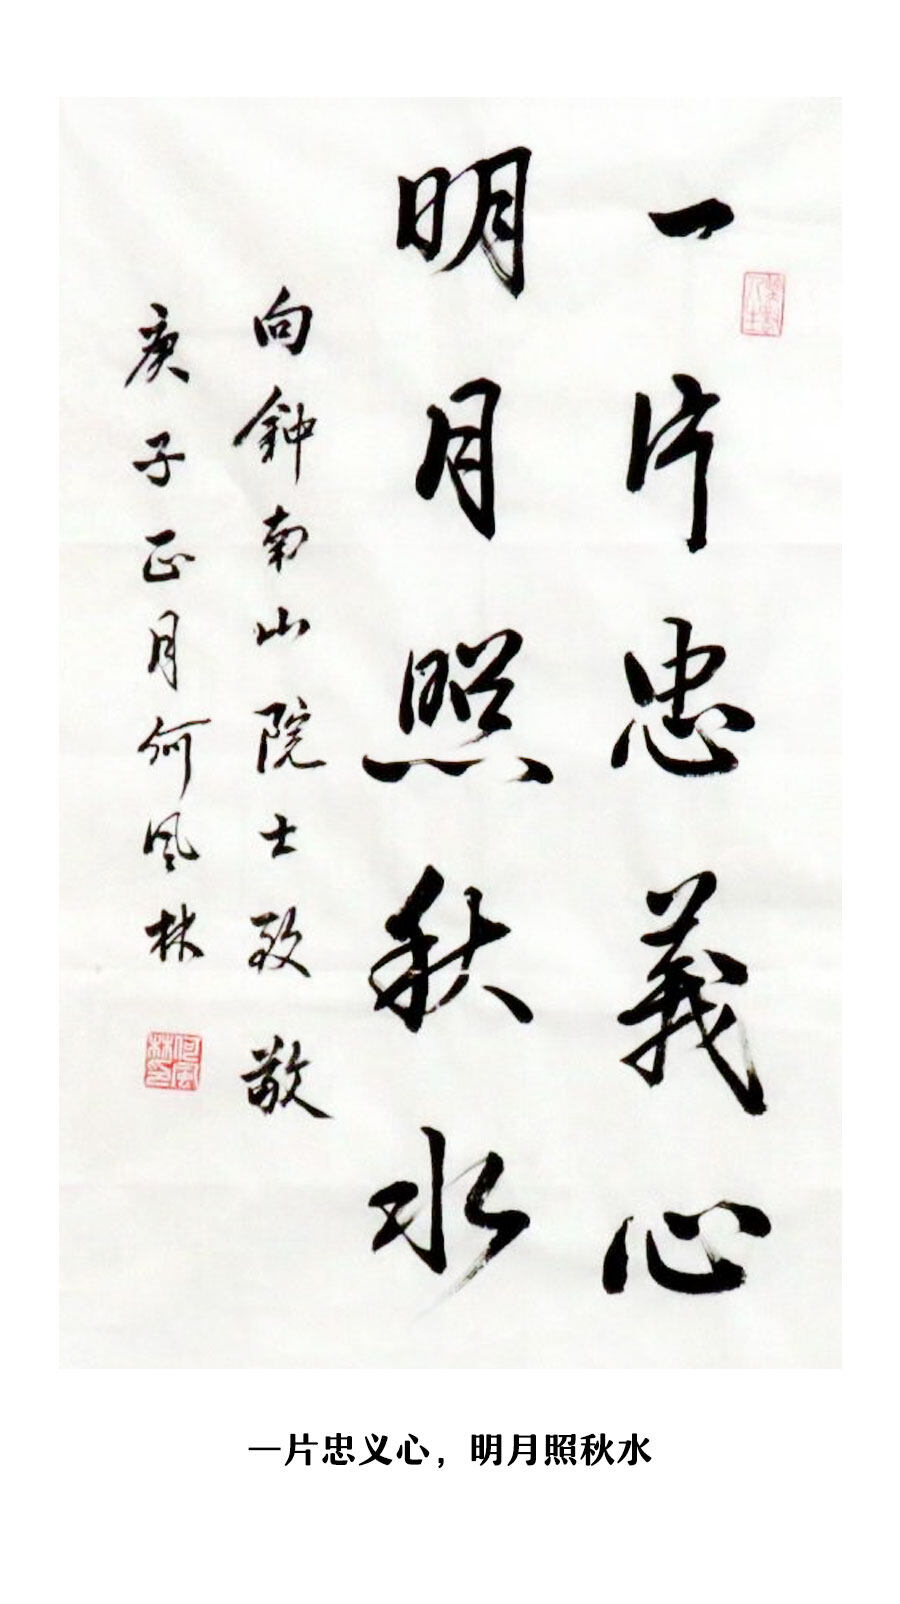 一片忠義心
明月照秋水
向鍾南山院士致敬
庚子正月何风林
何風林印
一片忠义心，明月照秋水